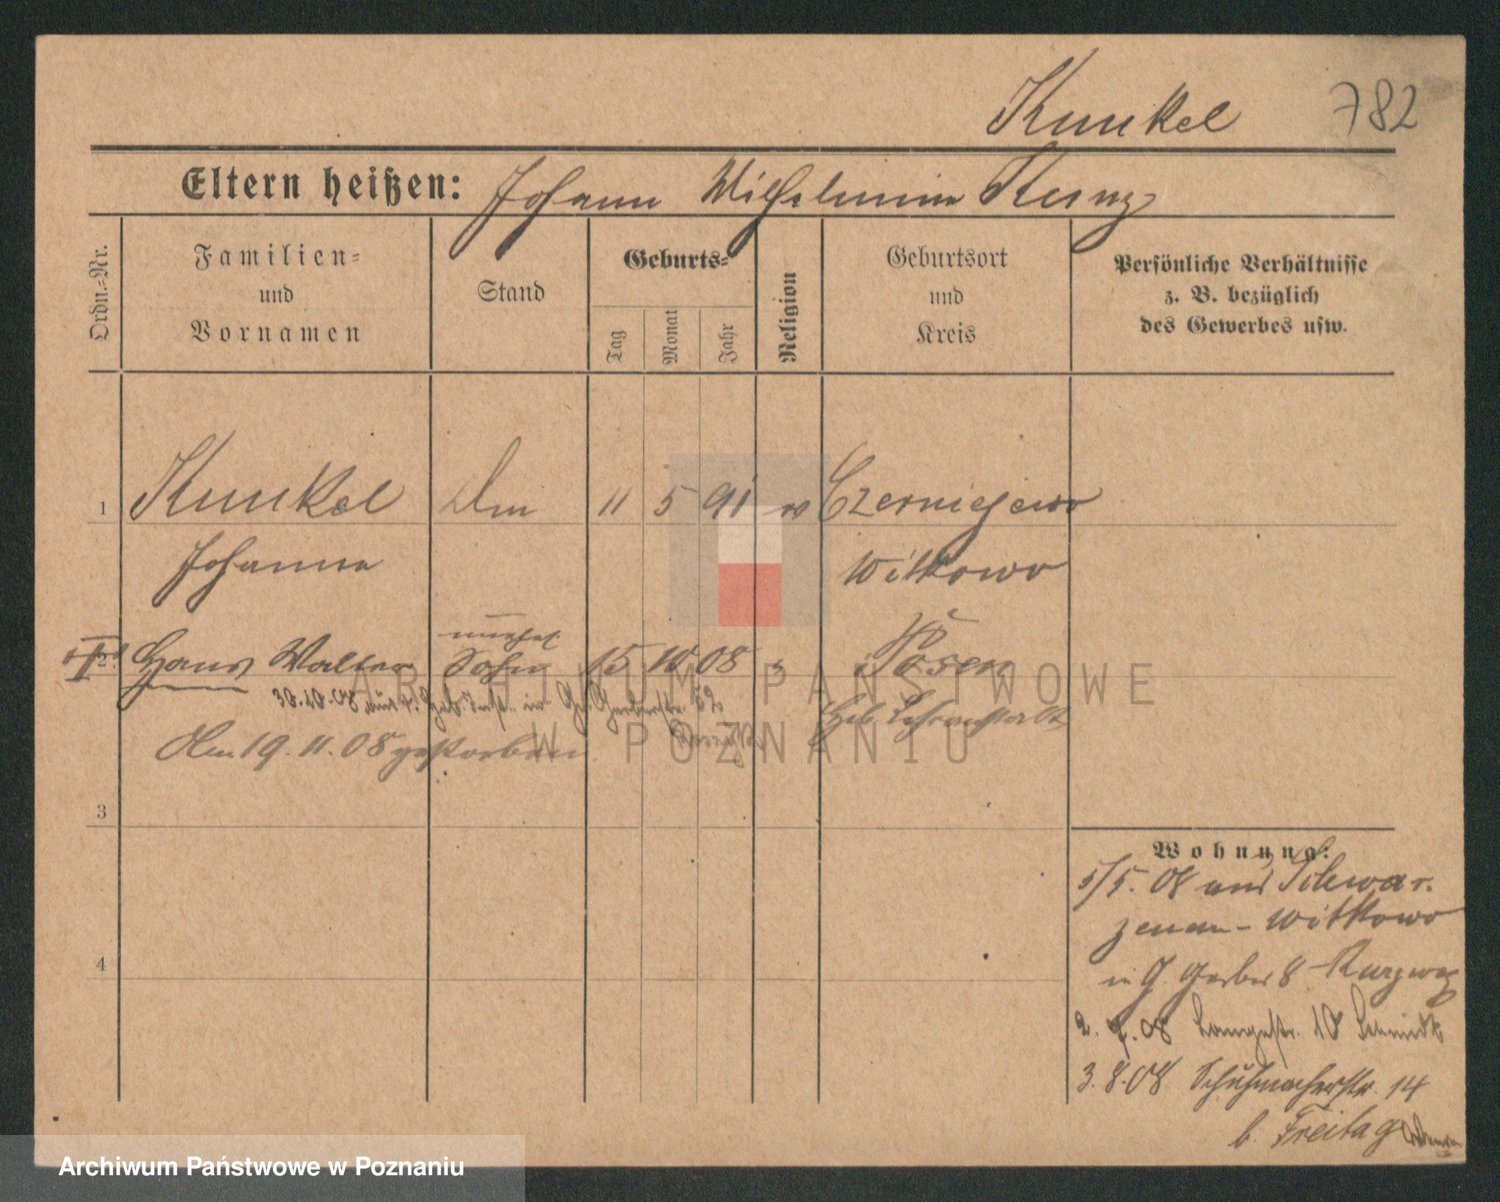 Kunkel 782
Eltern heißen: Johann Wilhelmine
Ordn.-Nr.
Familien-
und
Vornamen
Stand
Geburts-
Tag
Monat
Jahr
Religion
Geburtsort
und
Kreis
Persönliche Verhältnisse
z. B. bezüglich
des Gewerbes usw.
1 Kunkel 11 5 91 Czerniejewo
Johanna Witkowo
2 Hans Walter Sohn 15 10 08 Posen
30.10.08
Am 19.11.08 gestorben
3
4
Wohnung:
5/5. 08 aus Schwar-
zenau - Witkowo
in G. Gerber 8
2. 7. 08 Langestr. 10 Schmidt
3.8.08 Schuhmacherstr. 14
b. Freitag
ARCHIWUM PAŃSTWOWE
W POZNANIU
Archiwum Państwowe w Poznaniu